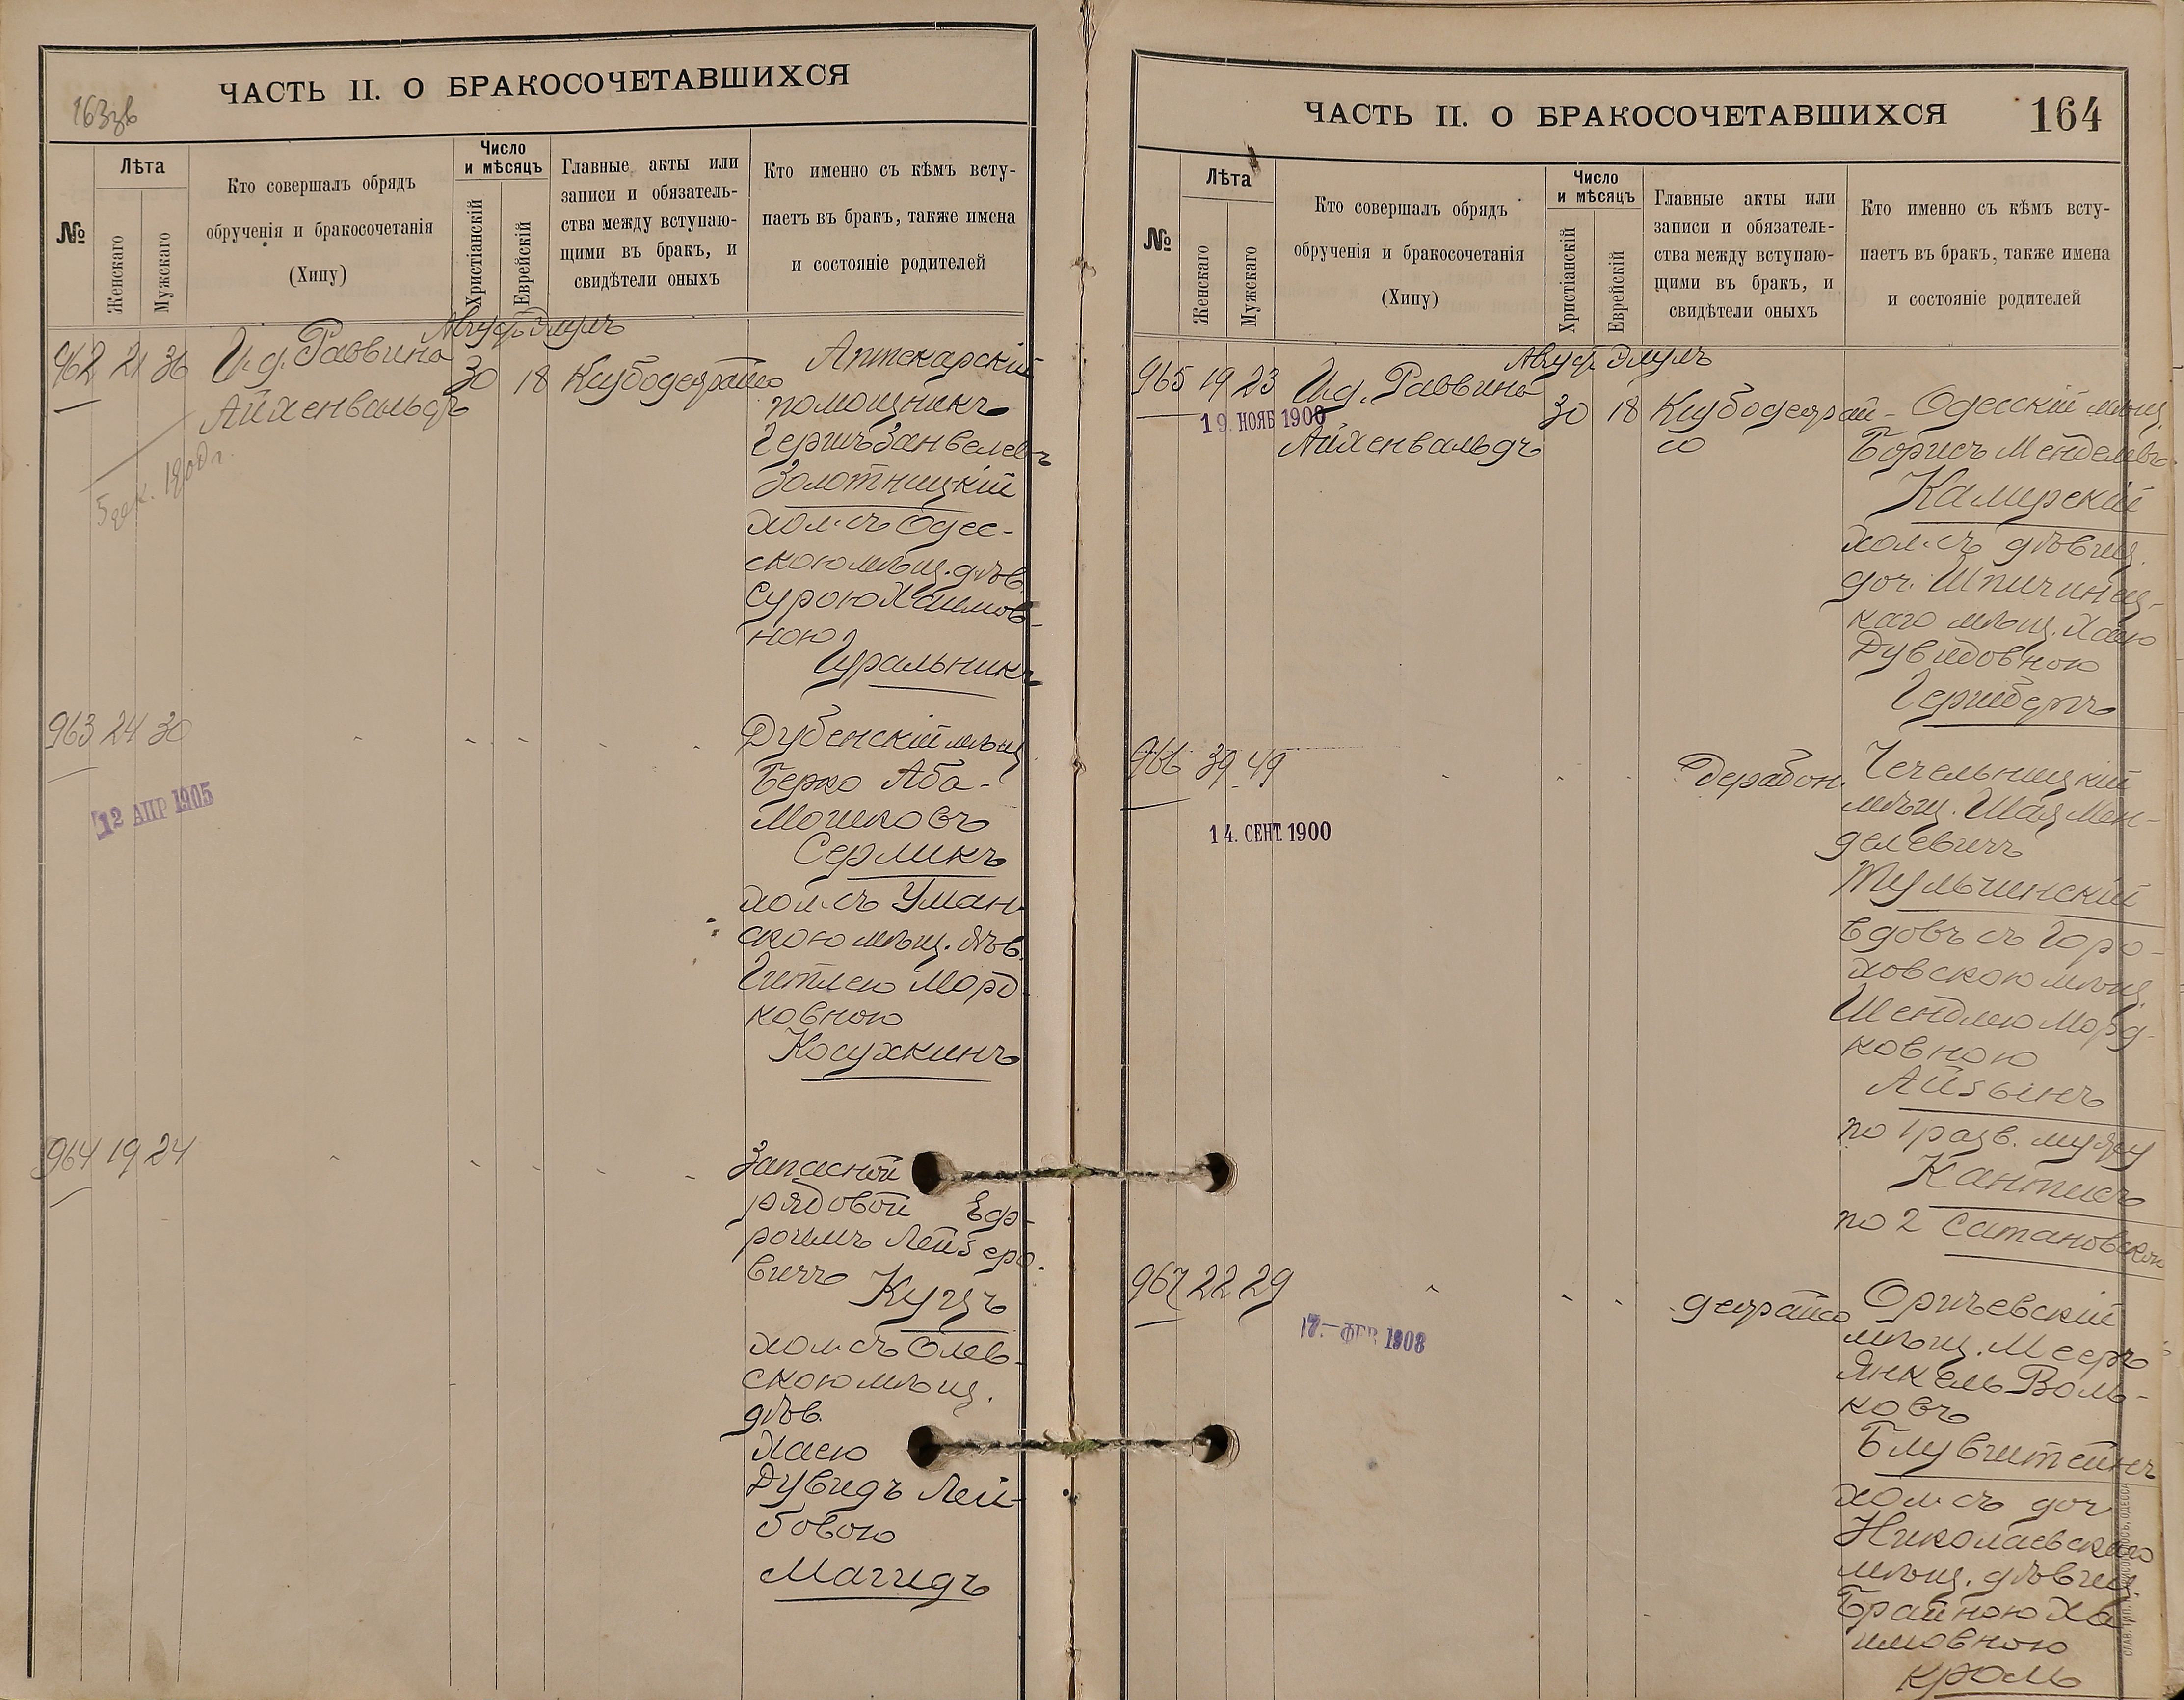 ЧАСТЬ II. О БРАКОСОЧЕТАВШИХСЯ
163зв
№
Лѣта
Женскаго
Мужскаго
Кто совершалъ обрядъ
обрученія и бракосочетанія
(Хипу)
Число
и мѣсяцъ
Христіанскій
Еврейскій
Главные акты или
записи и обязатель-
ства между вступаю-
щими въ бракъ, и
свидѣтели оныхъ
Кто именно съ кѣмъ всту-
паетъ въ бракъ, также имена
и состояніе родителей
Август Элулъ
962 21 36 И.д. Раввина 30 18 Аптекарскій
Айхенвальдъ
помощникъ
Гершъ Занвелевъ
Золотницкій
хол. съ Одес-
скою мѣщ. дѣв.
Сурою Хаимов-
ною
Гуральникъ
5 дек. 1900 г.
963 24 30
12 АПР 1905
Дубенскій мѣщ.
Берко Аба-
Мошковъ
Серликъ
хол. съ Уман-
скою мѣщ. дѣв.
Гитлею Морд-
ковною
Косухкинъ
964 19 24
Запасной
рядовой Еф-
роимъ Лейзеро-
вичъ Куцъ
хол. съ Олев-
скою мѣщ.
дѣв.
Хаею
Дувидъ Лей-
бовою
Магидъ
ЧАСТЬ II. О БРАКОСОЧЕТАВШИХСЯ
164
№
Лѣта
Женскаго
Мужскаго
Кто совершалъ обрядъ
обрученія и бракосочетанія
(Хипу)
Число
и мѣсяцъ
Христіанскій
Еврейскій
Главные акты или
записи и обязатель-
ства между вступаю-
щими въ бракъ, и
свидѣтели оныхъ
Кто именно съ кѣмъ всту-
паетъ въ бракъ, также имена
и состояніе родителей
Август Элулъ
965 19 23 И.д. Раввина 30 18 Одесскій мѣщ.
19. НОЯБ 1900
Айхенвальдъ
Борисъ Менделевъ
Камирскій
хол. съ дѣвиц.
доч. Шпичинец-
каго мѣщ. Хаею
Дувидовною
Гершбергъ
966 39 49
14. СЕНТ. 1900
Чечельницкій
мѣщ. Шая Мен-
делевичъ
Тульчинскій
вдовъ съ Горо-
ховскою мѣщ.
Шендлею Морд-
ковною
Айзынъ
по 1 разв. мужу
Кантисъ
по 2 Сатановскою
967 22 29
17.- ФЕВ 1908
мѣщ. Мееръ
Янкель Воль-
ковъ
Блувштейнъ
хол. съ доч
Николаевскаго
мѣщ. дѣвиц.
Брайною Ха-
имовною
Кроль